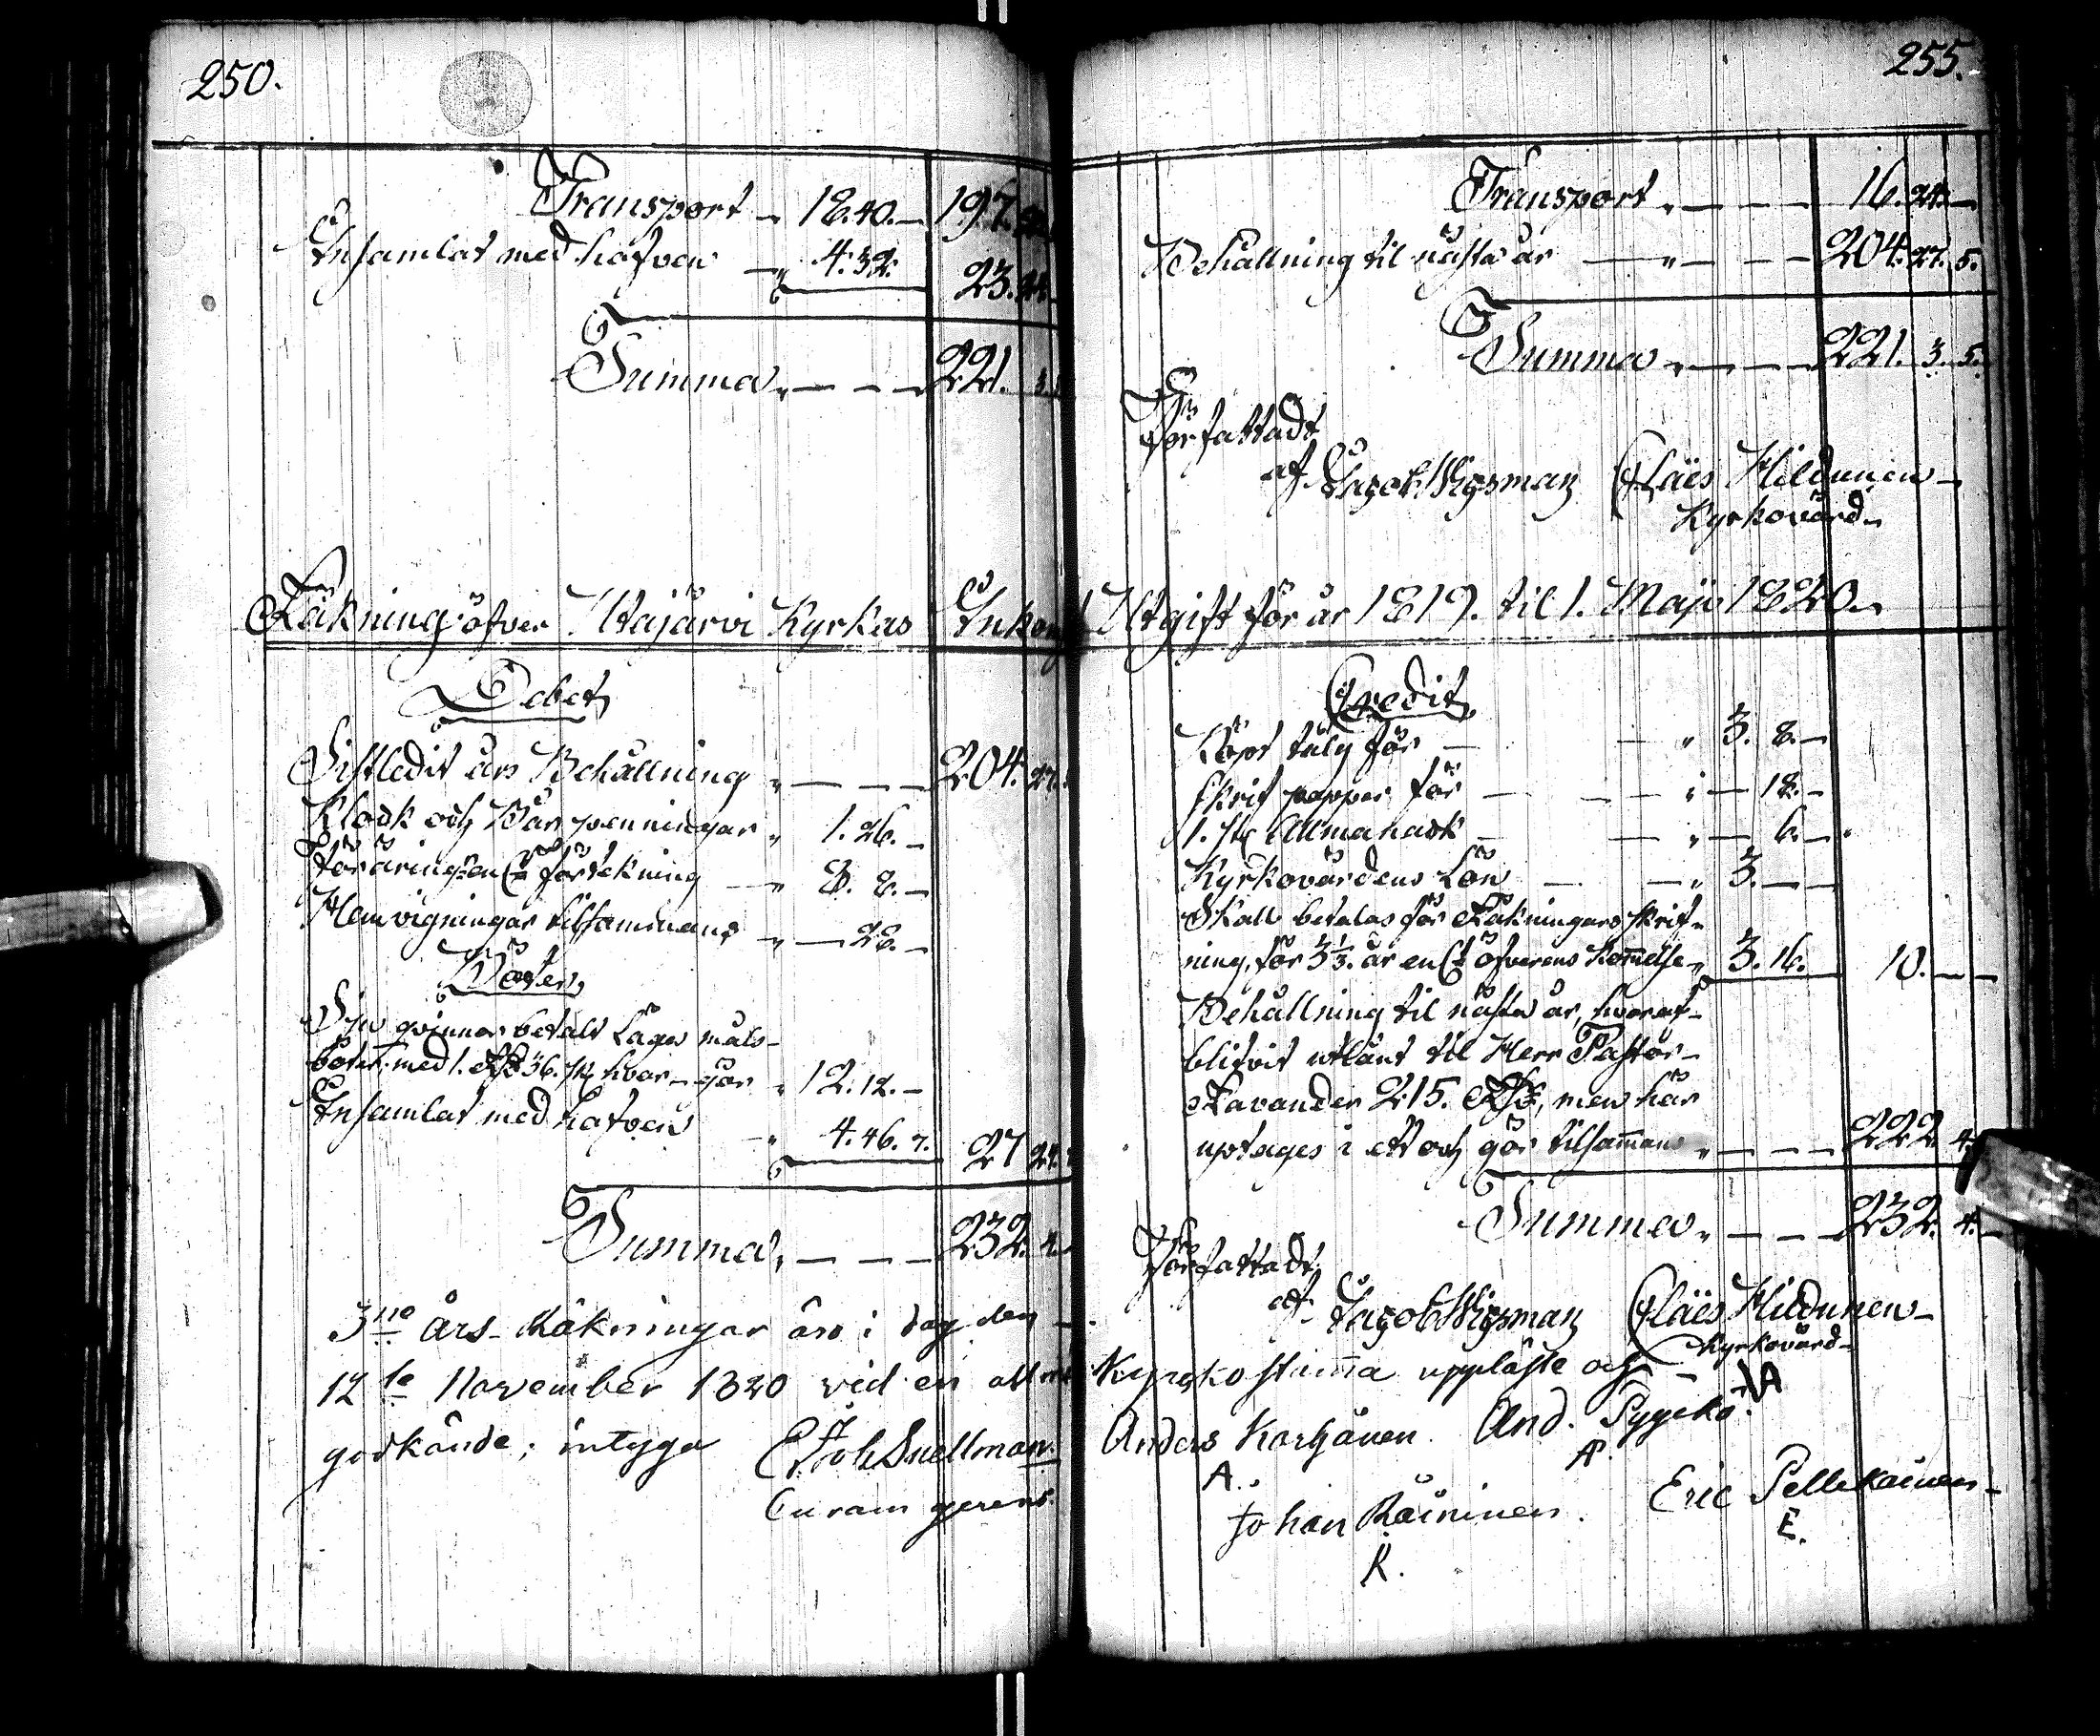 250.
Transport „ 18.40.— 197.
Insamlat med håfven — „ 4.32. 23.24.
Summa „ — — — 221. 3.
Räkning öfver Utajärvi Kyrkas Inkom
Debet
Sistledit års Behållning „ — — — 204. 27.
Klock och Bår penningar „ 1. 26. —
för — „ 8. 8. —
Hemvigningar tilsammans „ — 28. —
Böter
qvinnor betalt Lägersmåls-
böter, med 1. 36. hvar — gör „ 12. 12. —
Insamlat med håfven — „ 4. 46. 7. 27 24.
Summa, — — — 232. 4.
3ne års Räkningar äro i dag den —
12te November 1820 vid en allm
godkände; intyga E. Joh Snellman.
Curam gerens.
255.
Transport „ — — — 16. 24. —
Behållning til nästa år — „ — — — 204. 27. 5.
Summa „ — — — 221. 3. 5.
Författadt
af Jacob Wigsman Claës Hildunen —
Kyrkovärd.
Utgift för år 1819. til 1. Maji 1820.
Credit
Köpt talg för — — „ 3. 8. —
skrif papper för — — — „ — 18. —
1. st Allmanack — — „ — 6. —
Kyrkovärdens Lön — — „ 3. — —
Skall betalas för Räkningars skrif-
ning, för 3 1/3. år öfverens kommelse „ 3. 16. 10. — —
Behållning til nästa år, hvaraf —
blifvit utlånt til Herr Pastor —
Lavander 215. men här
uptages i ett och gör tilsammans „ — — — 222 4.
Summa „ — — — 232. 4. —
Författadt
af Jacob Wigsman Claës Hildunen —
Kyrkovärd —
Kyrko stämma uppläste och —
Anders Karhänen. And. Pyykö.
A. AP.
Johan Räininen. Eric Pellekainen —
R. E.